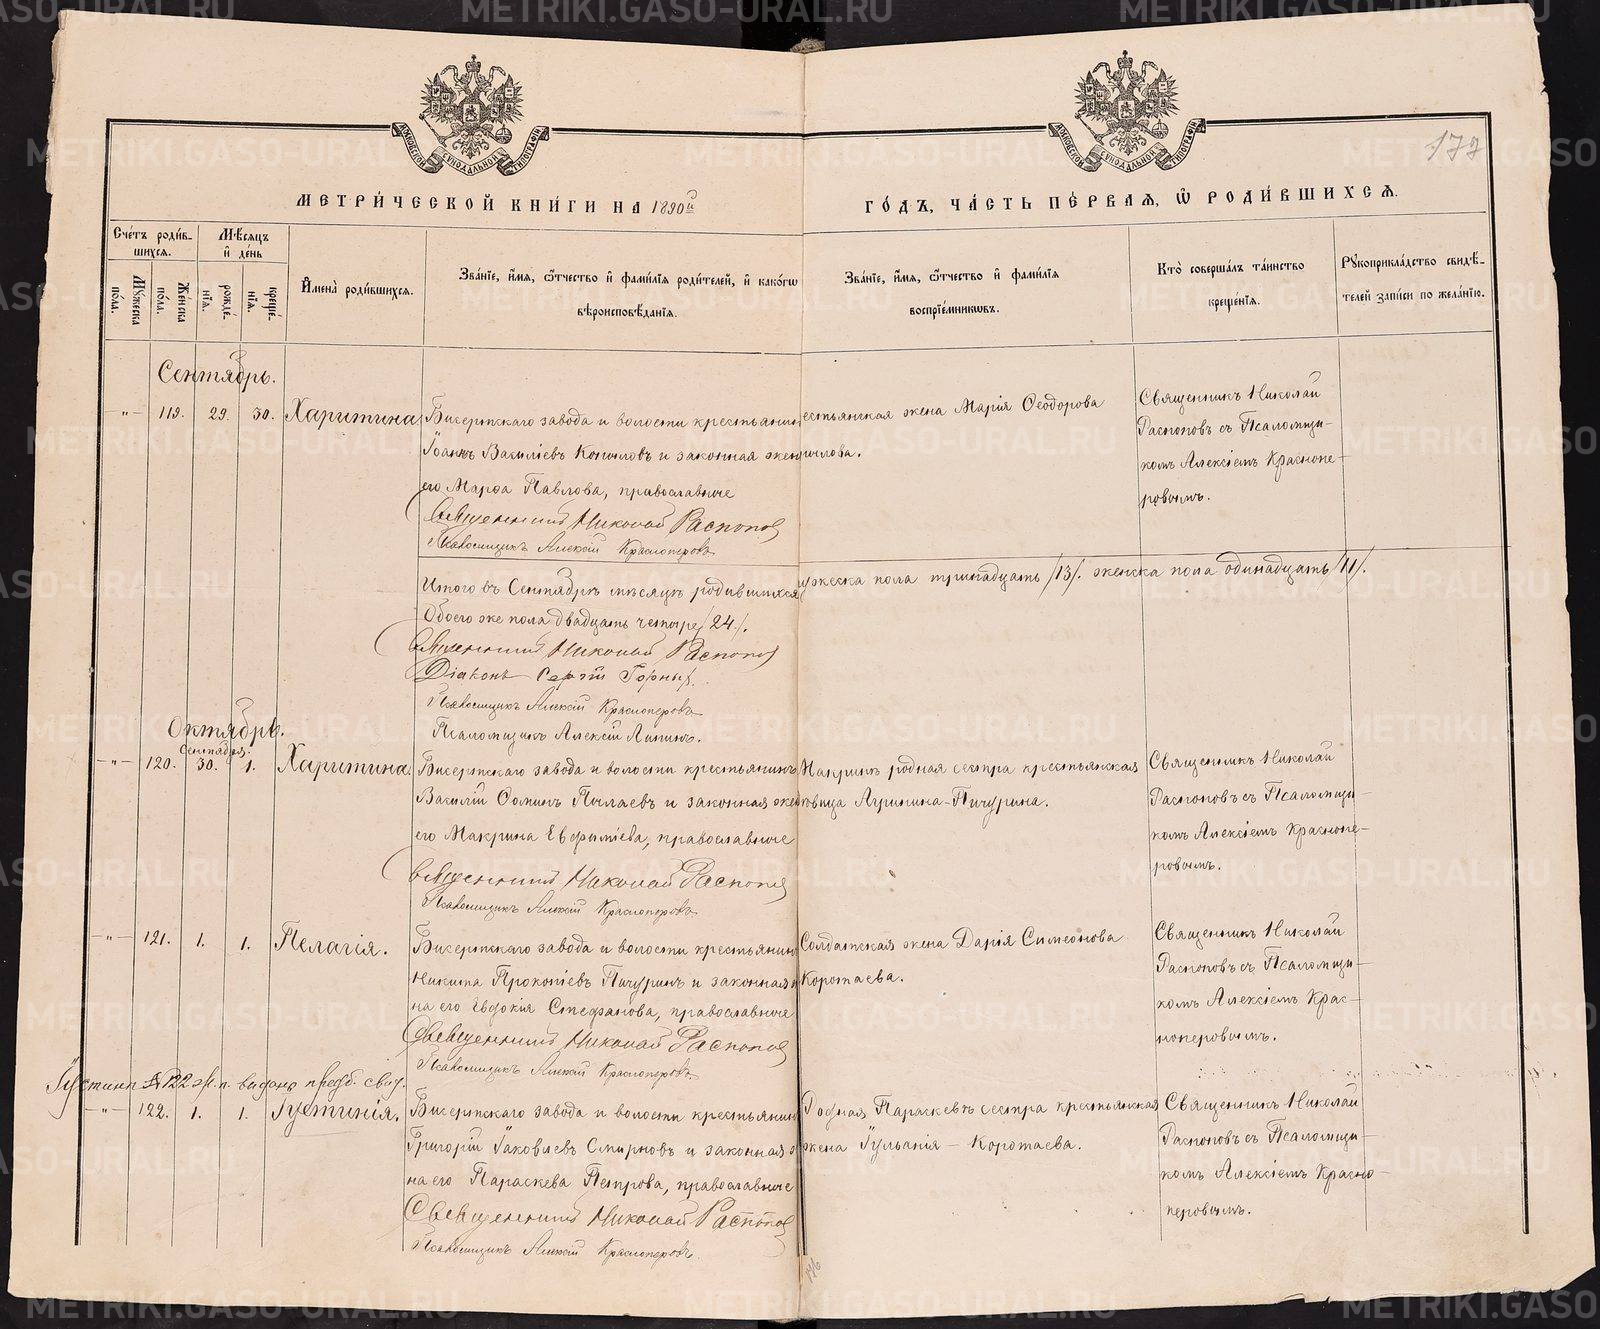 МЕТРИ́ЧЕСКОЙ КНИ́ГИ НА 1890й
ГО́ДЪ, ЧА́СТЬ ПЕ́РВАЯ, Ѡ РОДИ́ВШИХСЯ.
177
Сче́тъ роди́в-
шихся.
Мѣ́сяцъ
и҆ де́нь
Мꙋ́жеска по́ла.
Же́нска по́ла.
рожде́нїѧ.
креще́нїѧ.
И҆мена̀ роди́вшихся.
Зва́нїе, и҆́мѧ, ѻ҆́тчество и҆ фами́лїѧ роди́телей, и҆ како́гѡ
вѣроисповѣ́данїѧ.
Зва́нїе, и҆́мѧ, ѻ҆́тчество и҆ фами́лїѧ
воспрїе́мникѡвъ.
Кто̀ соверша́лъ та́инство
креще́нїѧ.
Рꙋкоприкла́дство свидѣ́-
телей за́писи по жела́нїю.
Сентябрь.
-"- 119. 29. 30. Харитина
Бисертскаго завода и волости крестьянин
Іоаннъ Василіевъ Копыловъ и законная жен
его Марѳа Павлова, православные
Священникъ Николай Распопов
Псаломщикъ Алексій Красноперовъ
естьянская жена Марія Ѳеодорова
ылова.
Священникъ Николай
Распоповъ съ Псаломщи-
комъ Алексіемъ Краснопе-
ровымъ.
Итого въ Сентябрѣ мѣсяцѣ родившихся
мужеска пола тринадцать /13/. женска пола одинадцать /11/.
Обоего же пола двадцать четыре /24/.
Священникъ Николай Распопов
Діаконъ Сергій Горныхъ
Псаломщикъ Алексій Красноперовъ
Псаломщикъ Алексій Липинъ.
Октябрь.
Сентября.
-"- 120. 30. 1. Харитина.
Бисертскаго завода и волости крестьянинъ
Василій Ѳоминъ Пылаевъ и законная жен
его Макрина Евѳиміева, православные
Священникъ Николай Распопов
Псаломщикъ Алексій Красноперовъ
Макринѣ родная сестра крестьянская
вица Агрипина Пичурина.
Священникъ Николай
Распоповъ съ Псаломщи-
комъ Алексіемъ Краснопе-
ровымъ.
-"- 121. 1. 1. Пелагія.
Бисертскаго завода и волости крестьянин
Никита Прокопіевъ Пичуринъ и законная
на его Евдокія Стефанова, православные
Священникъ Николай Распопов
Псаломщикъ Алексій Красноперовъ
Солдатская жена Дарія Симеонова
Коротаева.
Священникъ Николай
Распоповъ съ Псаломщи-
комъ Алексіемъ Крас-
ноперовымъ.
Іустинп № 122 ж. п. выдано предб. свид.
-"- 122. 1. 1. Іустинія.
Бисертскаго завода и волости крестьянин
Григорій Іаковлевъ Смирновъ и законная
на его Параскева Петрова, православные
Священникъ Николай Распопов
Псаломщикъ Алексій Красноперовъ.
Родная Параскевѣ сестра крестьянская
жена Іульянія – Коротаева.
Священникъ Николай
Распоповъ съ Псаломщи-
комъ Алексіемъ Красно-
перовымъ.
176